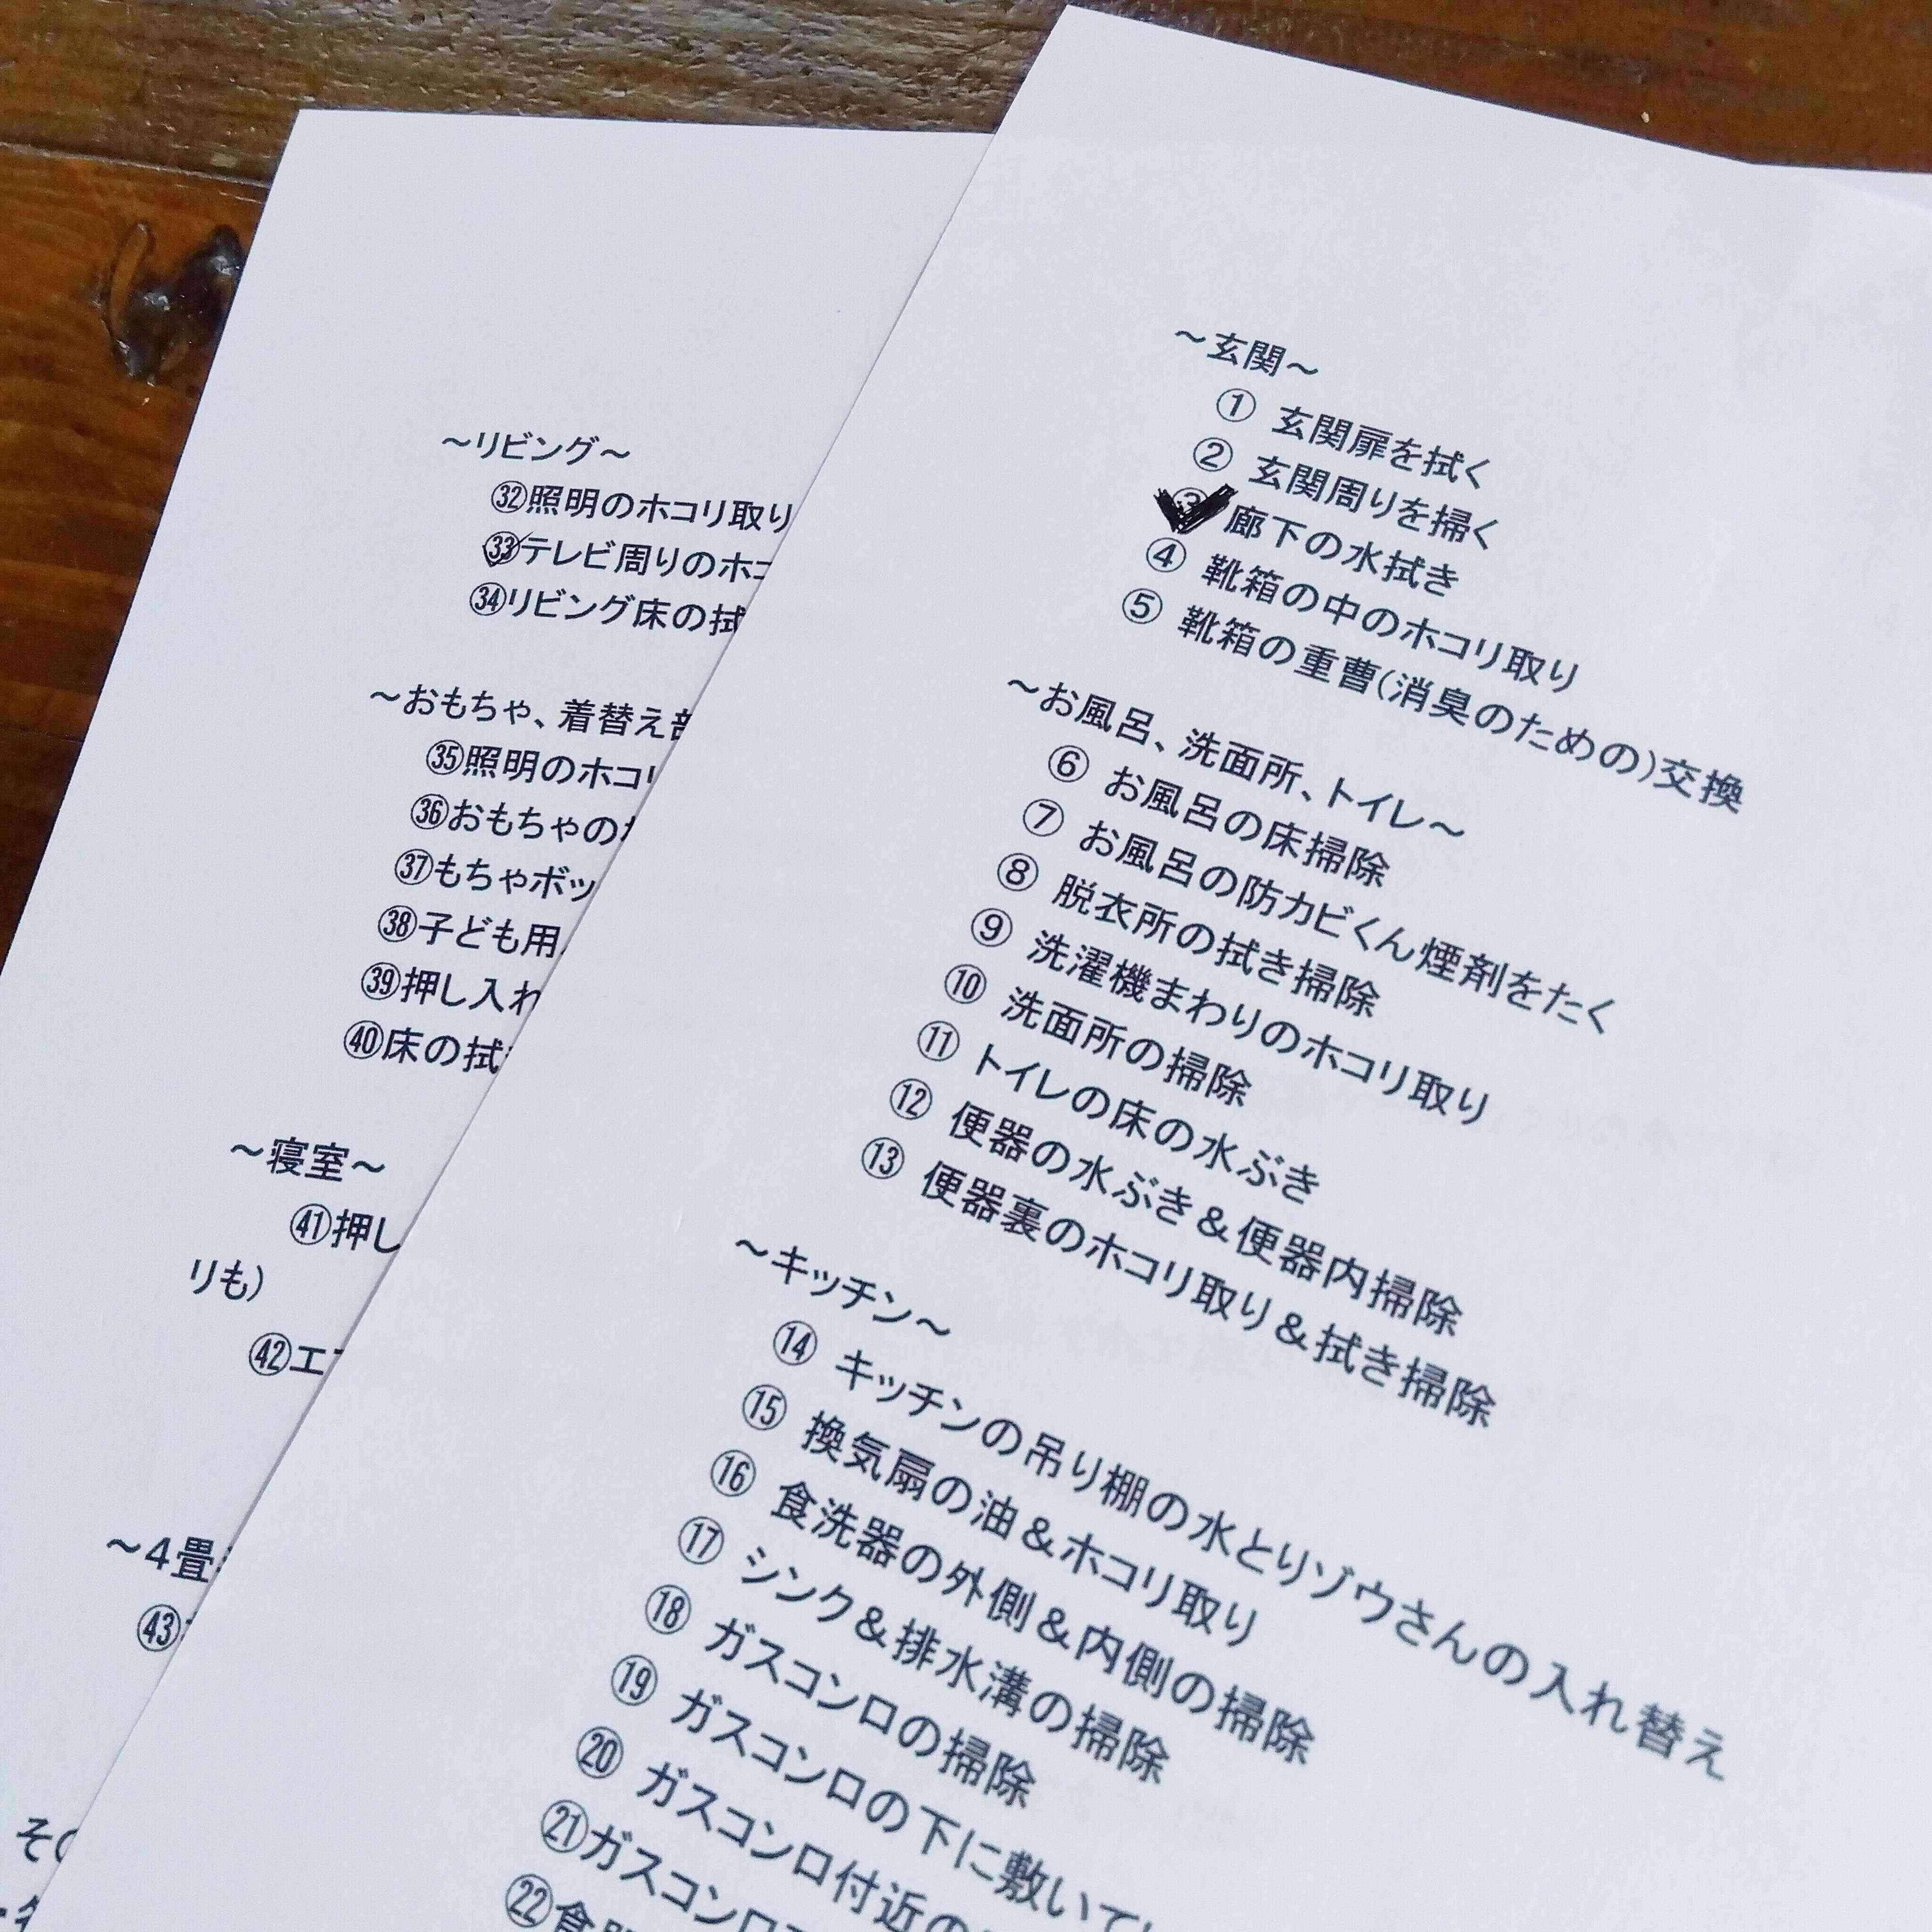 ～リビング～
㉜照明のホコリ取り
㉝テレビ周りのホコ
㉞リビング床の拭
～おもちゃ、着替え
㉟照明のホコリ
㊱おもちゃの
㊲もちゃボッ
㊳子ども用
㊴押し入れ
㊵床の拭
～寝室～
㊶押し
リも）
㊷エ
～４畳
㊸
その
～玄関～
① 玄関扉を拭く
② 玄関周りを掃く
③ 廊下の水拭き
④ 靴箱の中のホコリ取り
⑤ 靴箱の重曹（消臭のための）交換
～お風呂、洗面所、トイレ～
⑥ お風呂の床掃除
⑦ お風呂の防カビくん煙剤をたく
⑧ 脱衣所の拭き掃除
⑨ 洗濯機まわりのホコリ取り
⑩ 洗面所の掃除
⑪ トイレの床の水ぶき
⑫ 便器の水ぶき＆便器内掃除
⑬ 便器裏のホコリ取り＆拭き掃除
～キッチン～
⑭ キッチンの吊り棚の水とりゾウさんの入れ替え
⑮ 換気扇の油＆ホコリ取り
⑯ 食洗器の外側＆内側の掃除
⑰ シンク＆排水溝の掃除
⑱ ガスコンロの掃除
⑲ ガスコンロの下に敷いて
⑳ ガスコンロ付近の
㉑ガスコンロ
㉒食